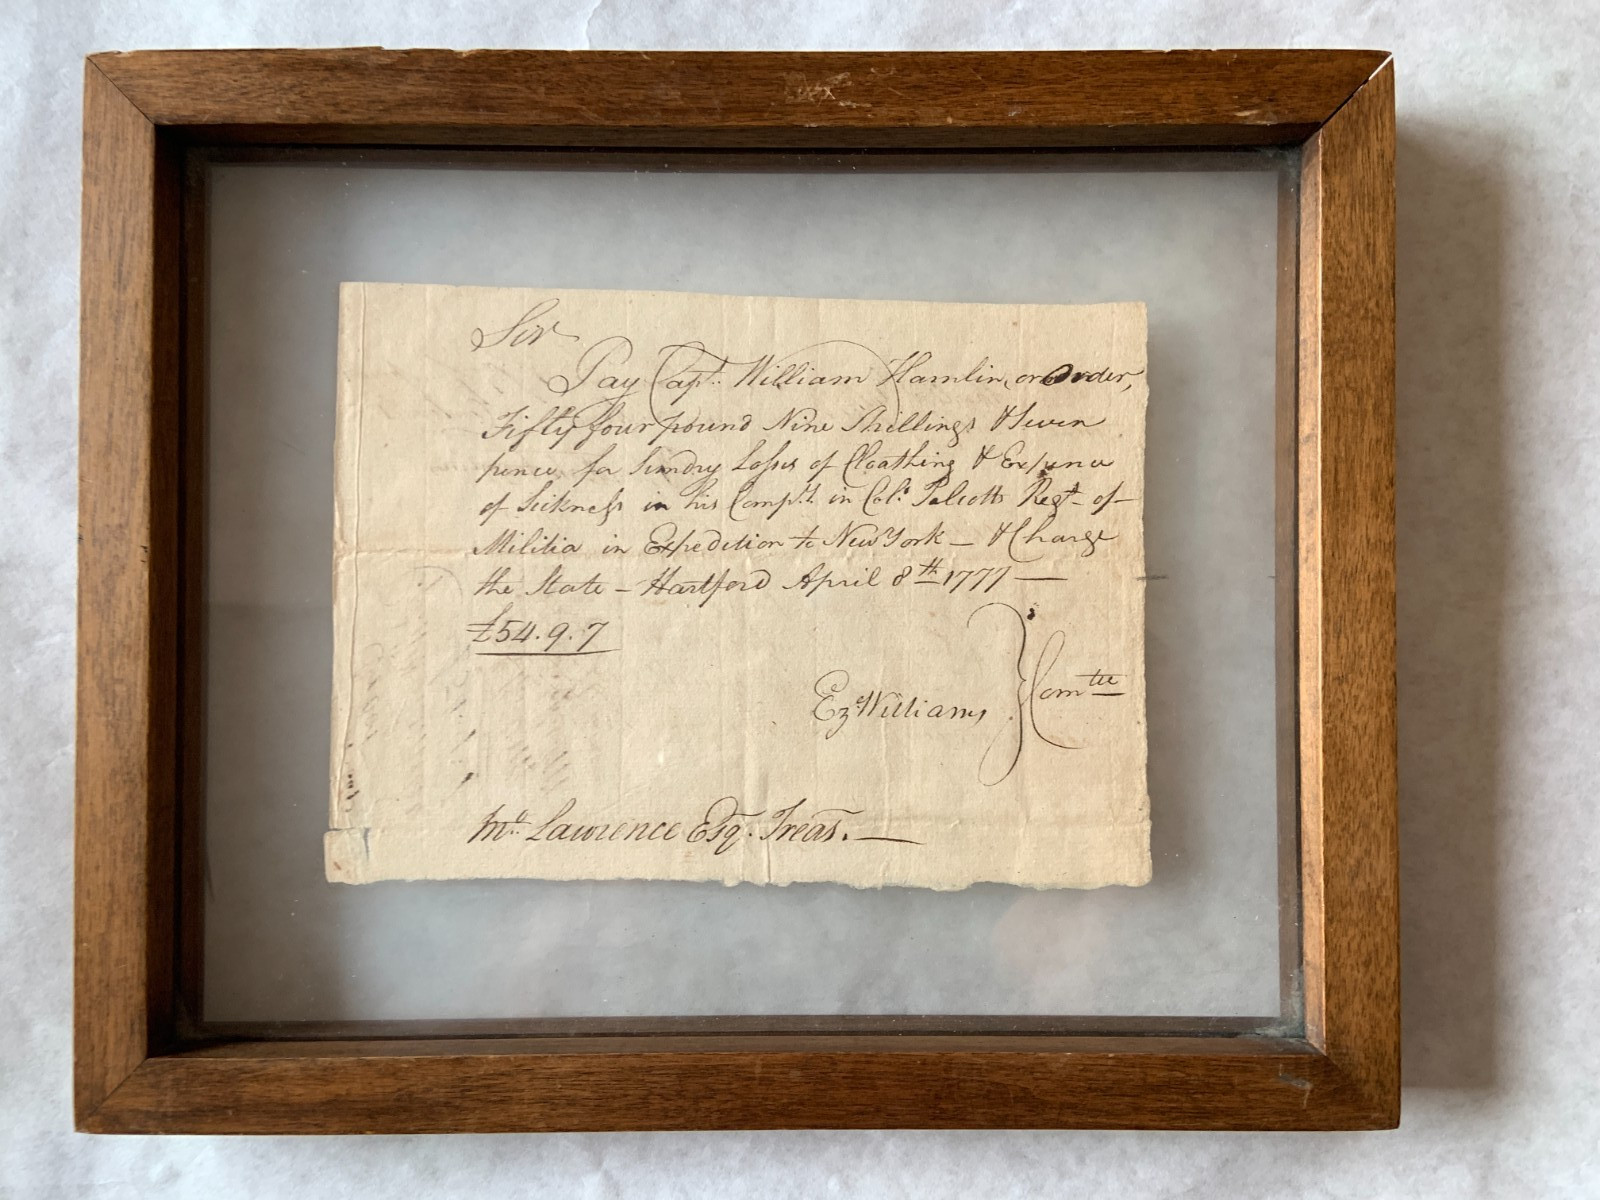 Sir
Pay Capt. William Hamlin, or Order,
Fifty four pound Nine Shillings & Seven
pence for Sundry Losses of Cloathing & Expence
of Sickness in his Compy. in Colo. Talcotts Regt. of
Militia in Expedition to New York — & Charge
the State — Hartford April 8th 1777 —
£54.9.7
Ezl Williams } Comtee
Mr. Lawrence Esq. Treas. —